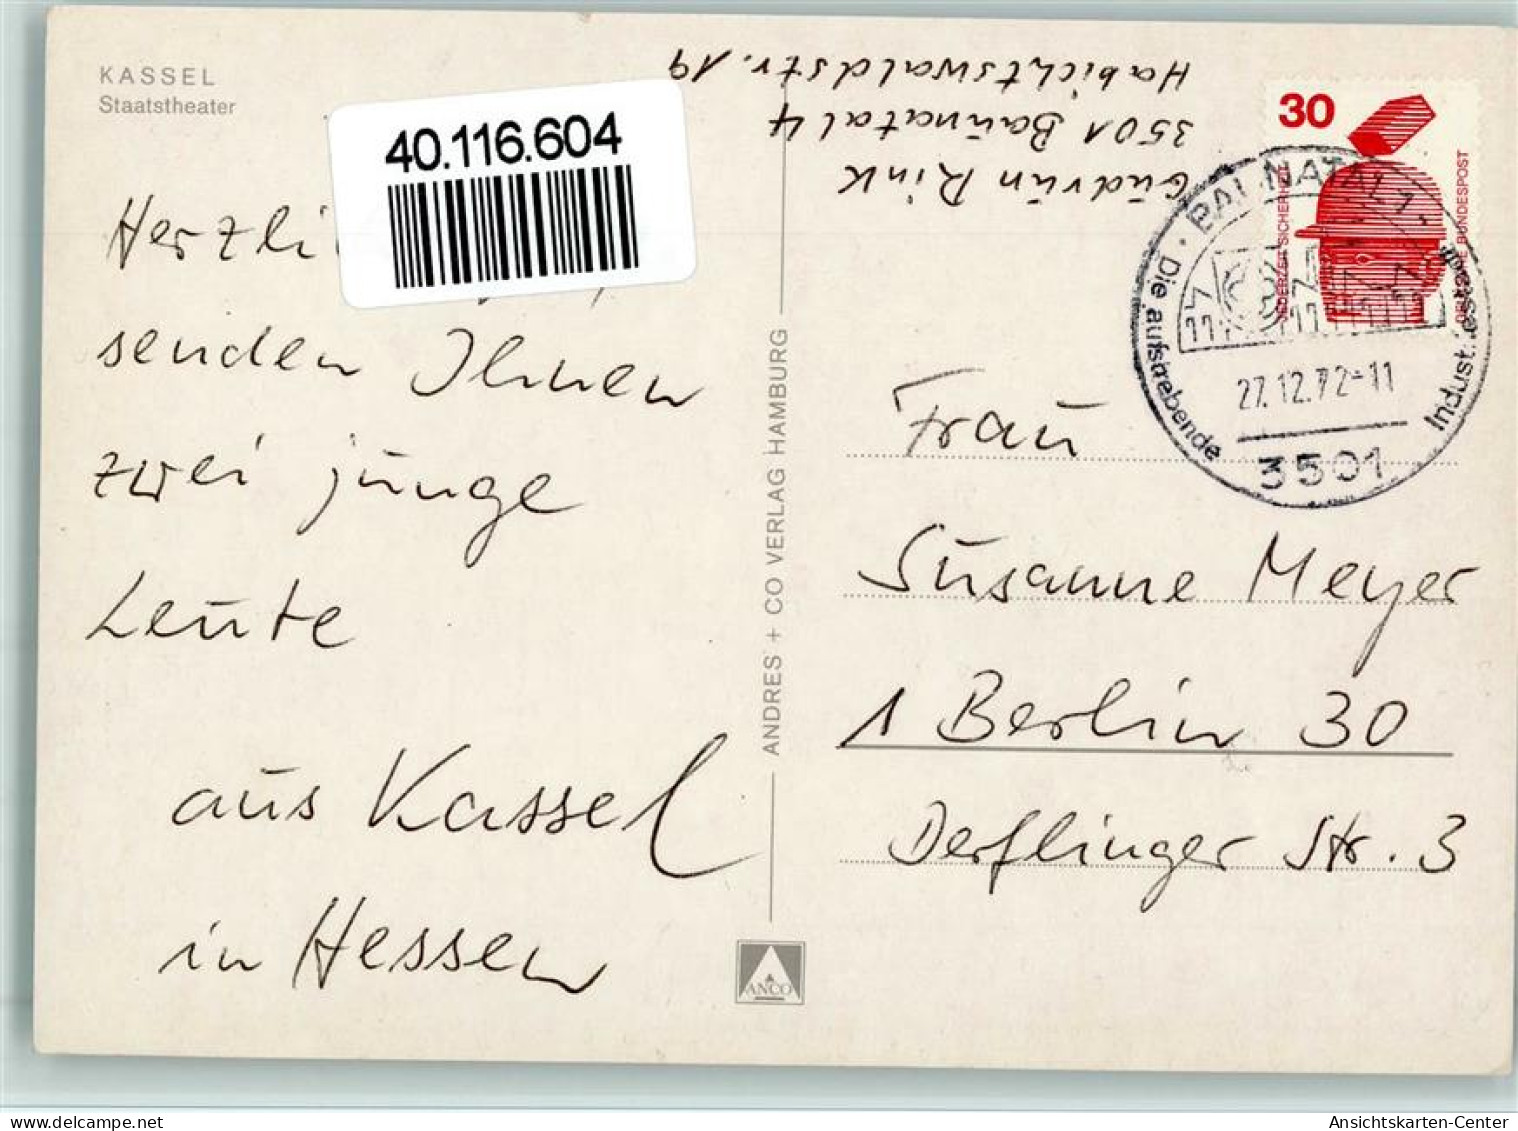 KASSEL
Staatstheater
40.116.604
senden Ihnen
zwei junge
Leute
aus Kassel
in Hessen
ANDRES + CO VERLAG HAMBURG
ANCO
Gudrun Rink
3501 Baunatal 4
Habichtswaldstr. 19
30
JEDERZEIT SICHERHEIT
DEUTSCHE BUNDESPOST
BAUNATAL 1
Die aufstrebende
27.12.72-11
3501
Frau
Susanne Meyer
1 Berlin 30
Derflinger Str. 3
delcampe.net
Ansichtskarten-Center